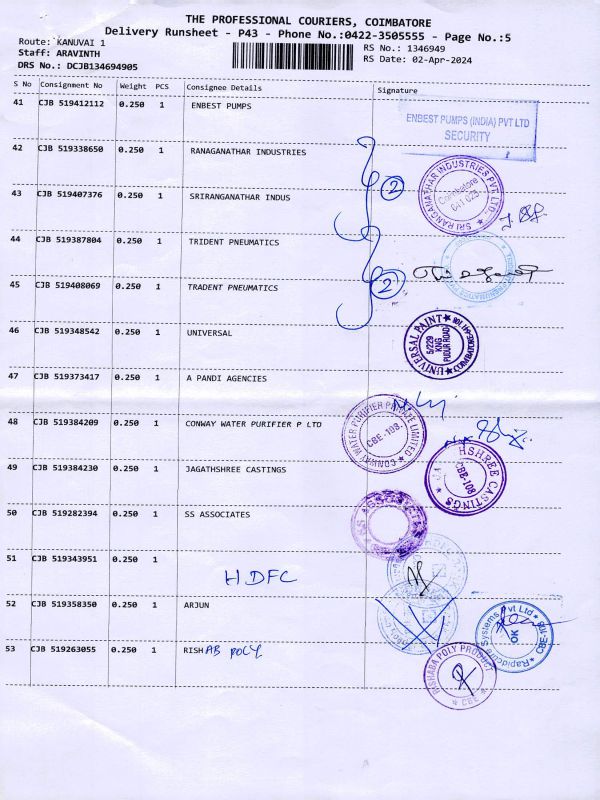 THE PROFESSIONAL COURIERS, COIMBATORE
Delivery Runsheet - P43 - Phone No.:0422-3505555 - Page No.:5
Route: KANUVAI 1
Staff: ARAVINTH
DRS No.: DCJB134694905
RS No.: 1346949
RS Date: 02-Apr-2024
S No Consignment No Weight PCS Consignee Details Signature
41 CJB 519412112 0.250 1 ENBEST PUMPS
ENBEST PUMPS (INDIA) PVT LTD
SECURITY
42 CJB 519338650 0.250 1 RANAGANATHAR INDUSTRIES
2
SRI RANGANATHAR INDUSTRIES PVT LTD.
Coimbatore
641 029
43 CJB 519407376 0.250 1 SRIRANGANATHAR INDUS
44 CJB 519387804 0.250 1 TRIDENT PNEUMATICS
45 CJB 519408069 0.250 1 TRADENT PNEUMATICS
2
46 CJB 519348542 0.250 1 UNIVERSAL
UNIVERSAL PAINT
5/229
KNG
PUDUR ROAD
47 CJB 519373417 0.250 1 A PANDI AGENCIES
48 CJB 519384209 0.250 1 CONWAY WATER PURIFIER P LTD
CONWAY WATER PURIFIER PRIVATE LIMITED
CBE-108.
49 CJB 519384230 0.250 1 JAGATHSHREE CASTINGS
HSHREE CASTINGS
CBE-108
50 CJB 519282394 0.250 1 SS ASSOCIATES
SS ASSOCIATES
51 CJB 519343951 0.250 1
HDFC
52 CJB 519358350 0.250 1 ARJUN
Rapidcare Systems Pvt Ltd
OK
53 CJB 519263055 0.250 1 RISHAB POLY
RISHABA POLY PRODUCT
CBE